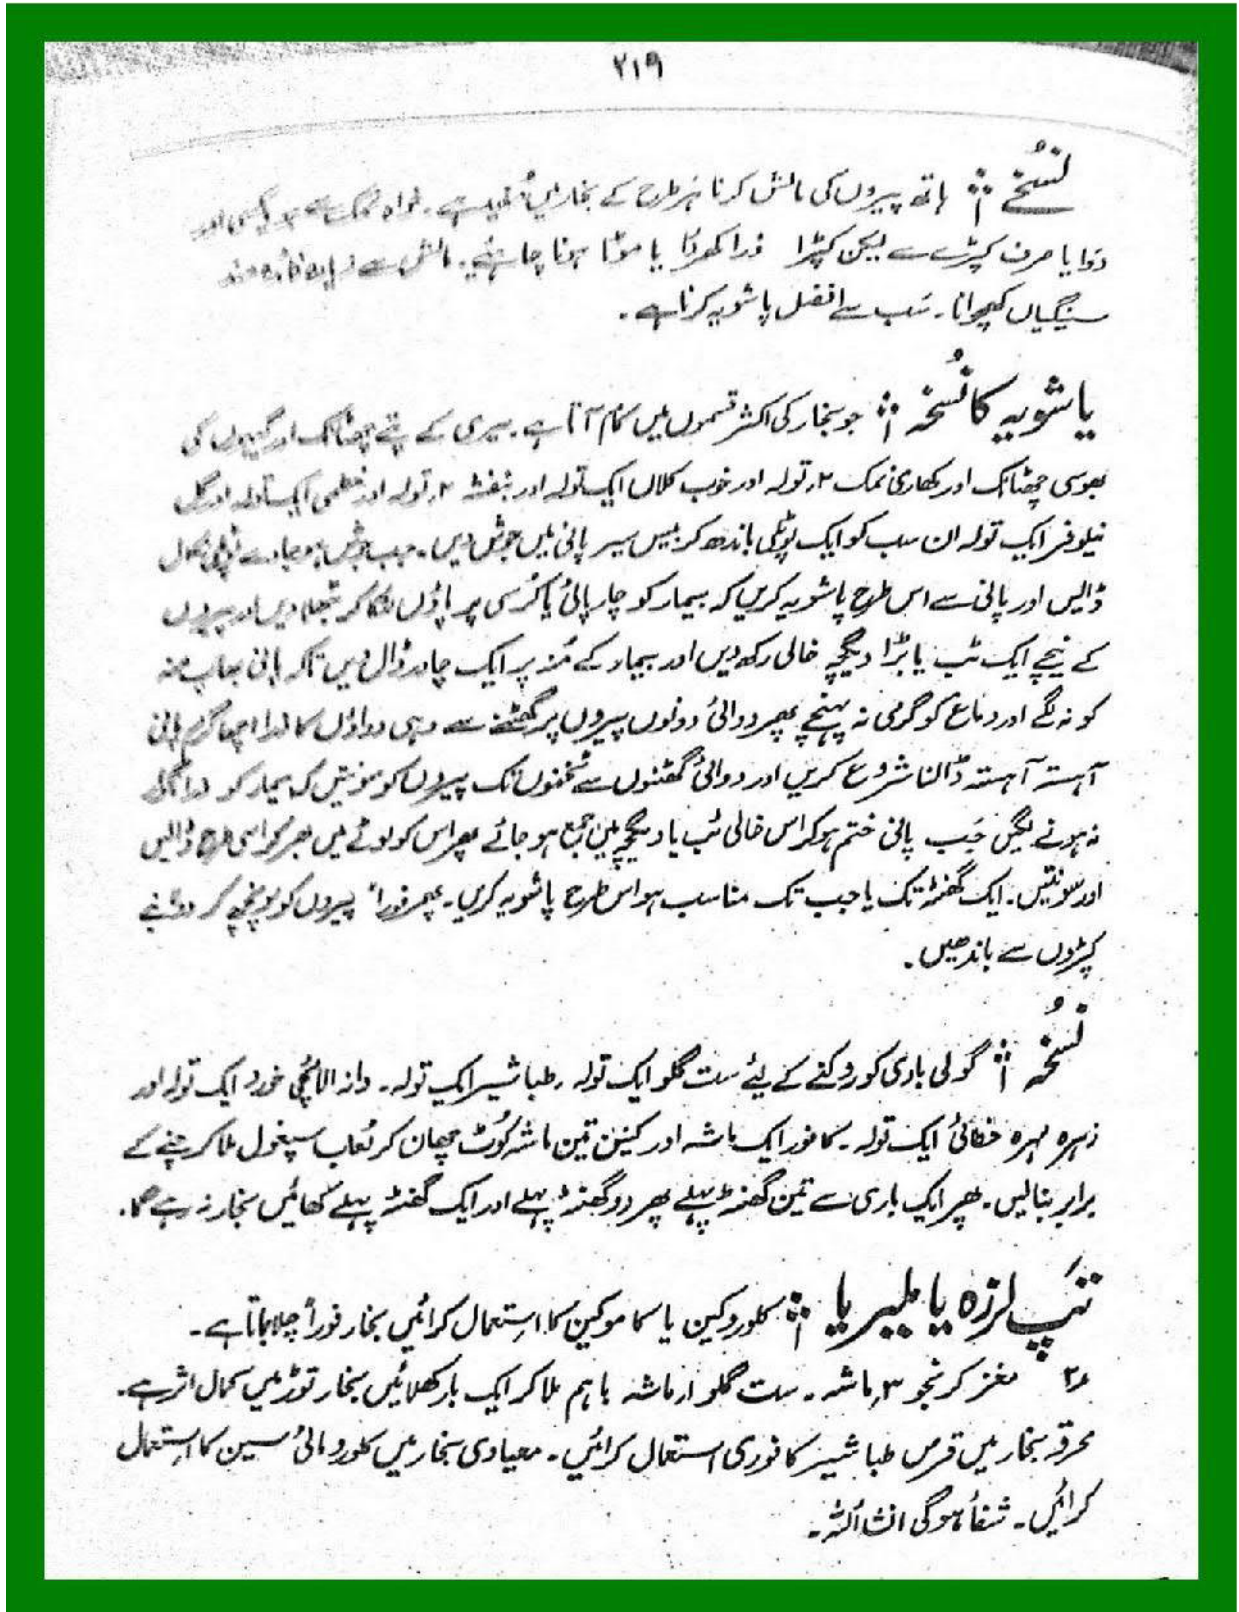 ۲۱۹
نسُخہ ؞ ہاتھ پیروں کی مالش کرنا ہر طرح کے بخار میں مُفید ہے۔ خواہ نمک سے ہو یا کسی اور
دَوا یا صرف کپڑے سے لیکن کپڑا ذرا کھُردَا یا موٹا ہونا چاہئیے۔ مالش سے
سینگیاں کھچوانا۔ سَب سے افضل پاشویہ کرنا ہے۔
پاشویہ کا نُسخہ ؞ جو بخار کی اکثر قسموں میں کام آتا ہے۔ بیری کے پتے چھٹانک اور گیہوں کی
بھوسی چھٹانک اور کھاری نمک ۲ تولہ اور خوب کلاں ایک تولہ اور بنفشہ ۲ تولہ اور خطمی ایک تولہ اور گل
نیلوفر ایک تولہ ان سب کو ایک پوٹلی باندھ کر بیس سیر پانی میں جوش دیں۔ جب جوش ہو جاوے پوٹلی نکال
ڈالیں اور پانی سے اس طرح پاشویہ کریں کہ بیمار کو چارپائی یا کُرسی پر پاؤں لٹکا کر بٹھلا دیں اور پیروں
کے نیچے ایک ٹب یا بڑا دیگچہ خالی رکھ دیں اور بیمار کے مُنہ پر ایک چادر ڈال دیں تاکہ پانی بھاپ منہ
کو نہ لگے اور دماغ کو گرمی نہ پہنچے پھر دوائی دونوں پیروں پر گھٹنے سے وہی دواؤں کا اچھا گرم پانی
آہستہ آہستہ ڈالنا شروع کریں اور دوائی گھٹنوں سے ٹخنوں تک پیروں کو سونتیں کہ بیمار کو
نہ ہونے لگیں جَب پانی ختم ہو کر اس خالی ٹب یا دیگچہ میں جمع ہو جائے پھر اس کو لوٹے میں بھر کر اسی طرح ڈالیں
اور سونتیں۔ ایک گھنٹہ تک یا جب تک مناسب ہو اس طرح پاشویہ کریں۔ پھر فوراً پیروں کو پونچھ کر
کپڑوں سے باندھیں۔
نُسخہ ؞ گولی باری کو روکنے کے لیئے ست گلو ایک تولہ۔ طباشیر ایک تولہ۔ دانہ الائچی خورد ایک تولہ اور
زہرہ مہرہ خطائی ایک تولہ۔ کافور ایک ماشہ اور کنین تین ماشہ کُوٹ چھان کر لعاب اسپغول ملا کر چنے کے
برابر بنالیں۔ پھر ایک باری سے تین گھنٹہ پہلے پھر دو گھنٹہ پہلے اور ایک گھنٹہ پہلے کھائیں بخار نہ رہے گا۔
تَپ لرزہ یا ملیریا ؞ کلوروکین یا کاموکین کا استعمال کرائیں بخار فوراً چلا جاتا ہے۔
۲ مغز کرنجو ۳ ماشہ۔ ست گلو ۱ ماشہ باہم ملا کر ایک بار کھلائیں بخار توڑ میں کمال اثر ہے۔
محرقہ بخار میں قرص طباشیر کافوری استعمال کرائیں۔ معیادی بخار میں کلورومائی سین کا استعمال
کرائیں۔ شفأ ہوگی انشأاللہ۔